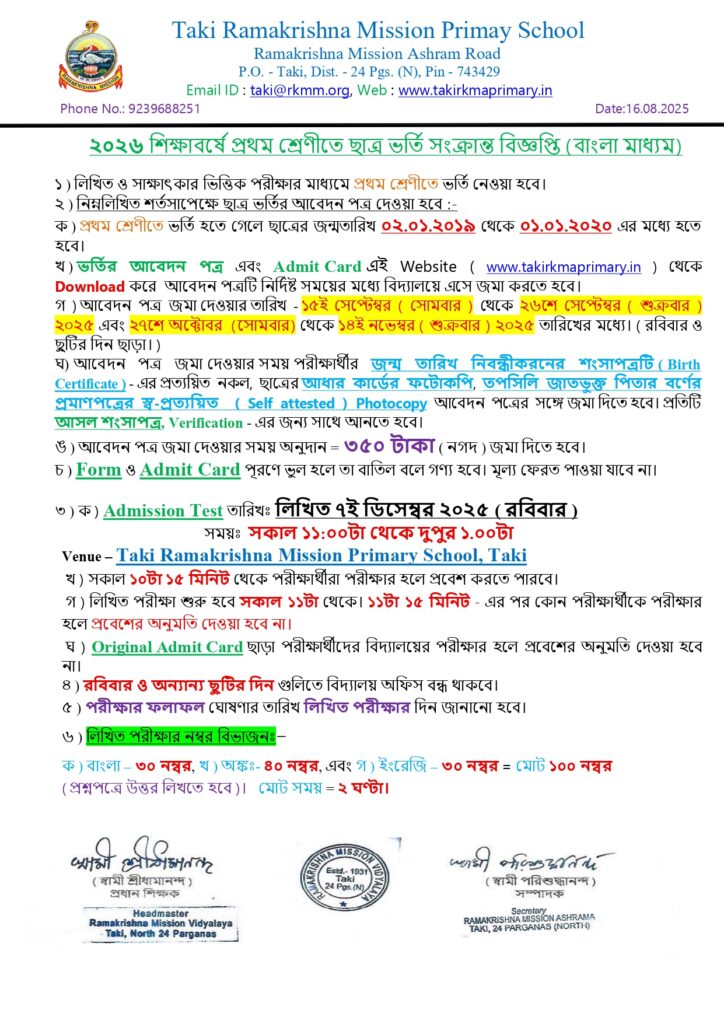 Taki Ramakrishna Mission Primay School
Ramakrishna Mission Ashram Road
P.O. - Taki, Dist. - 24 Pgs. (N), Pin - 743429
Email ID : taki@rkmm.org, Web : www.takirkmaprimary.in
Phone No.: 9239688251 Date:16.08.2025
RAMAKRISHNA MISSION
২০২৬ শিক্ষাবর্ষে প্রথম শ্রেণীতে ছাত্র ভর্তি সংক্রান্ত বিজ্ঞপ্তি (বাংলা মাধ্যম)
১ ) লিখিত ও সাক্ষাৎকার ভিত্তিক পরীক্ষার মাধ্যমে প্রথম শ্রেণীতে ভর্তি নেওয়া হবে।
২ ) নিম্নলিখিত শর্তসাপেক্ষে ছাত্র ভর্তির আবেদন পত্র দেওয়া হবে :-
ক ) প্রথম শ্রেণীতে ভর্তি হতে গেলে ছাত্রের জন্মতারিখ ০২.০১.২০১৯ থেকে ০১.০১.২০২০ এর মধ্যে হতে
হবে।
খ ) ভর্তির আবেদন পত্র এবং Admit Card এই Website ( www.takirkmaprimary.in ) থেকে
Download করে আবেদন পত্রটি নির্দিষ্ট সময়ের মধ্যে বিদ্যালয়ে এসে জমা করতে হবে।
গ ) আবেদন পত্র জমা দেওয়ার তারিখ - ১৫ই সেপ্টেম্বর ( সোমবার ) থেকে ২৬শে সেপ্টেম্বর ( শুক্রবার )
২০২৫ এবং ২৭শে অক্টোবর (সোমবার) থেকে ১৪ই নভেম্বর ( শুক্রবার ) ২০২৫ তারিখের মধ্যে। ( রবিবার ও
ছুটির দিন ছাড়া। )
ঘ) আবেদন পত্র জমা দেওয়ার সময় পরীক্ষার্থীর জন্ম তারিখ নিবন্ধীকরনের শংসাপত্রটি ( Birth
Certificate ) - এর প্রত্যয়িত নকল, ছাত্রের আধার কার্ডের ফটোকপি, তপসিলি জাতভুক্ত পিতার বর্ণের
প্রমাণপত্রের স্ব-প্রত্যয়িত ( Self attested ) Photocopy আবেদন পত্রের সঙ্গে জমা দিতে হবে। প্রতিটি
আসল শংসাপত্র, Verification - এর জন্য সাথে আনতে হবে।
ঙ) আবেদন পত্র জমা দেওয়ার সময় অনুদান = ৩৫০ টাকা ( নগদ ) জমা দিতে হবে।
চ ) Form ও Admit Card পূরণে ভুল হলে তা বাতিল বলে গণ্য হবে। মূল্য ফেরত পাওয়া যাবে না।
৩ ) ক ) Admission Test তারিখঃ লিখিত ৭ই ডিসেম্বর ২০২৫ ( রবিবার )
সময়ঃ সকাল ১১:০০টা থেকে দুপুর ১.০০টা
Venue – Taki Ramakrishna Mission Primary School, Taki
খ ) সকাল ১০টা ১৫ মিনিট থেকে পরীক্ষার্থীরা পরীক্ষার হলে প্রবেশ করতে পারবে।
গ ) লিখিত পরীক্ষা শুরু হবে সকাল ১১টা থেকে। ১১টা ১৫ মিনিট - এর পর কোন পরীক্ষার্থীকে পরীক্ষার
হলে প্রবেশের অনুমতি দেওয়া হবে না।
ঘ ) Original Admit Card ছাড়া পরীক্ষার্থীদের বিদ্যালয়ের পরীক্ষার হলে প্রবেশের অনুমতি দেওয়া হবে
না।
৪ ) রবিবার ও অন্যান্য ছুটির দিন গুলিতে বিদ্যালয় অফিস বন্ধ থাকবে।
৫ ) পরীক্ষার ফলাফল ঘোষণার তারিখ লিখিত পরীক্ষার দিন জানানো হবে।
৬ ) লিখিত পরীক্ষার নম্বর বিভাজনঃ–
ক ) বাংলা – ৩০ নম্বর, খ ) অঙ্কঃ- ৪০ নম্বর, এবং গ ) ইংরেজি – ৩০ নম্বর = মোট ১০০ নম্বর
( প্রশ্নপত্রে উত্তর লিখতে হবে )। মোট সময় = ২ ঘণ্টা।
স্বামী শ্রীধামানন্দ
( স্বামী শ্রীধামানন্দ )
প্রধান শিক্ষক
Headmaster
Ramakrishna Mission Vidyalaya
Taki, North 24 Parganas
RAMAKRISHNA MISSION VIDYALAYA
Estd.- 1931
Taki
24 Pgs.(N)
স্বামী পরিশুদ্ধানন্দ
( স্বামী পরিশুদ্ধানন্দ )
সম্পাদক
Secretary
RAMAKRISHNA MISSION ASHRAMA
TAKI, 24 PARGANAS (NORTH)